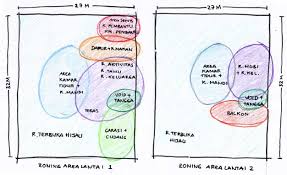 27 M
AREA SERVIS
R. PEMBANTU
KM. PEMBANTU
DAPUR + R. MAKAN
R. AKTIVITAS
R. TAMU
R. KELUARGA
AREA
KAMAR
TIDUR +
K. MANDI
VOID +
TANGGA
TERAS
GARASI +
GUDANG
R. TERBUKA
HIJAU
32 M
ZONING AREA LANTAI 1
27 M
AREA
KAMAR
TIDUR +
K. MANDI
R. HOBI
+ R. KEL.
VOID +
TANGGA
BALKON
R. TERBUKA
HIJAU
32 M
ZONING AREA LANTAI 2